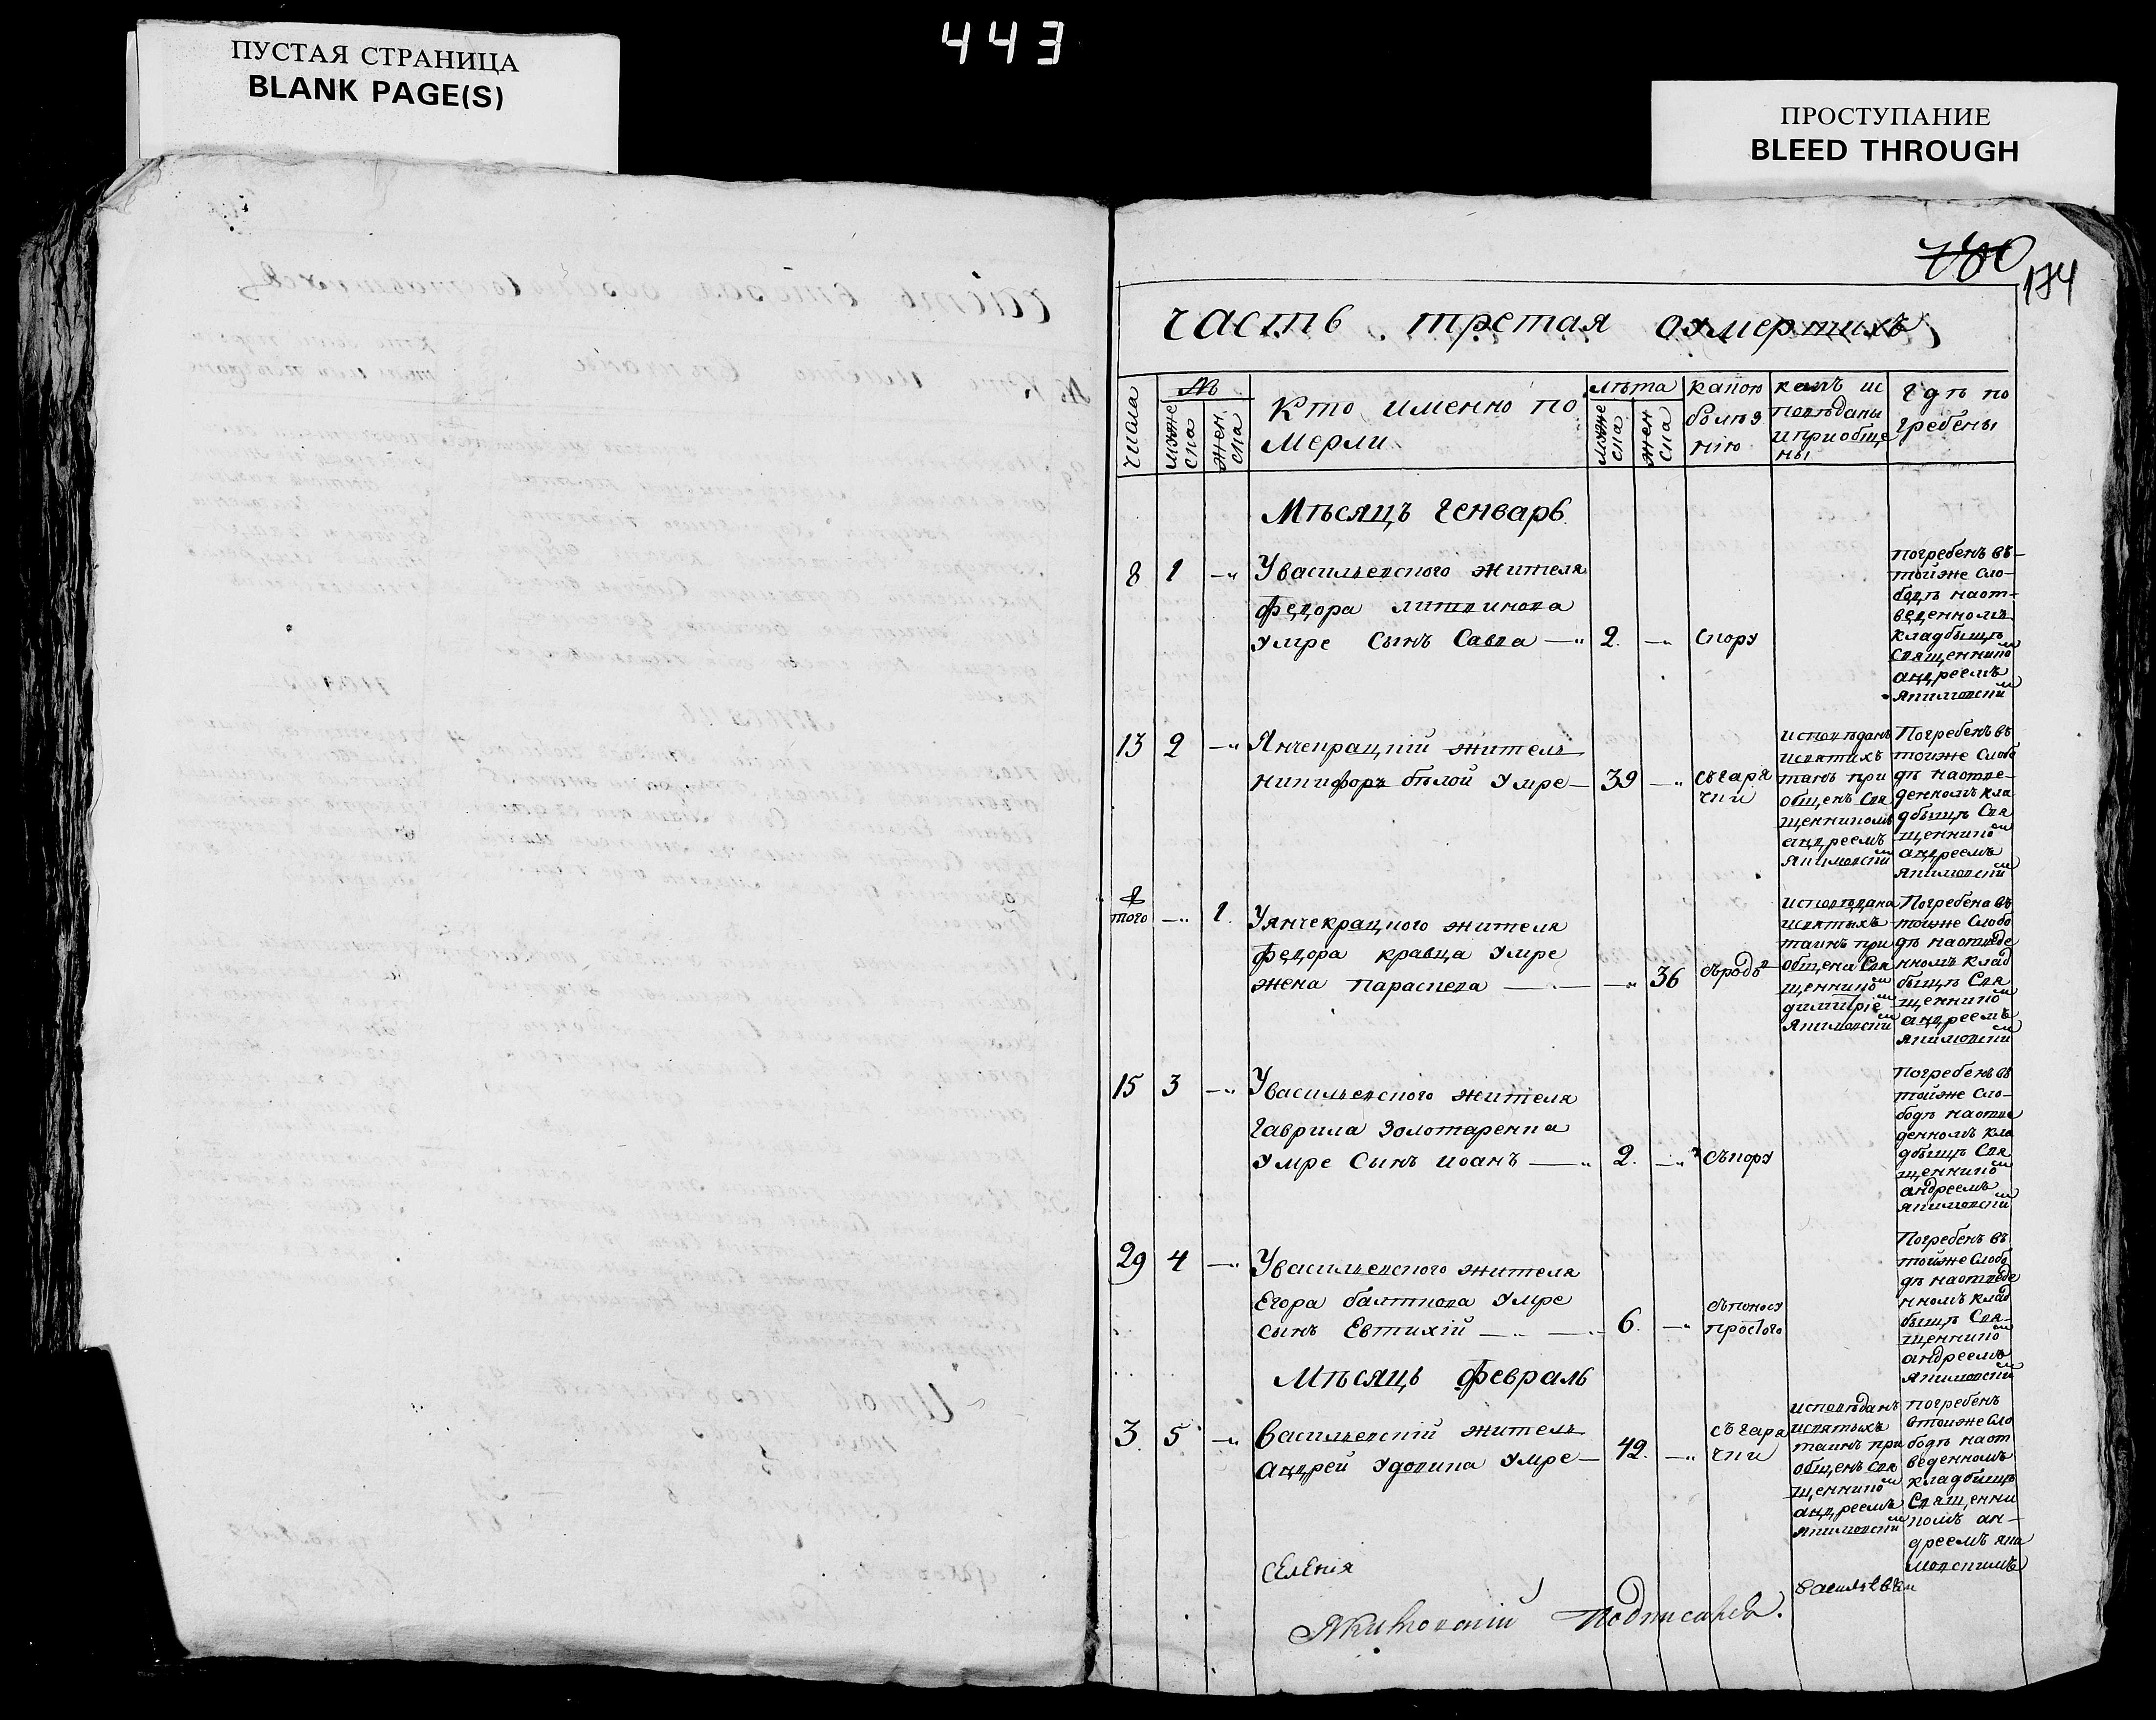 443
ПУСТАЯ СТРАНИЦА
BLANK PAGE(S)
ПРОСТУПАНИЕ
BLEED THROUGH
780
184
часть третая оумертихъ
числа
№
мѫже
ска
жен
ска
Кто именно по
мерли
лѣта
мѫже
ска
жен
ска
какою
болѣз
нію
кемъ ис
повѣданы
и приобще
ны
Гдѣ по
гребены
Мѣсяцъ Генварь
8 1 —„ У васильевского жителя
федора литвинова
умре сынъ Савва —„ 2. —„ Скору
погребенъ въ
тойже сло-
бодѣ на от-
веденномъ
кладбыщѣ
священнико м
андреемъ
Якимовски м
13 2 —„ Янчекрацкій житель
никифоръ бѣлой умре — 39 —„ съгаря
чки
исповѣданъ
и святихъ
таинъ при
общенъ Свя
щенникомъ
андреемъ
Якимовски м
Погребенъ въ
тойже Слобо
дѣ на отве-
денномъ кла
дбыщѣ Свя
щеннико м
андреемъ
Якимовски м
того —„ 1. У янчекрацкого жителя
федора кравца умре
жена параскева —„— —„ 36 съродъ
исповѣдана
и святыхъ
таинъ при
общена Свя
щеннико м
димитріе м
Якимовски м
Погребена въ
тойже Слобо
дѣ на отведе
нномъ клад
быщѣ Свя
щеннико м
андреемъ
Якимовски м
15 3 —„ У васильевского жителя
Гаврила Золотаренка
умре Сынъ иоанъ —„ 2. —„ съкору
Погребенъ въ
тойже сло-
бодѣ на отве
денномъ кла
дбыщѣ Свя
щеннико м
андреемъ
Якимовски м
29 4 —„ У васильевского жителя
Егора балтпова умре
сынъ Евтихій —„ —„ 6. —„ съпоносу
простого
Погребенъ въ
тойже Слобо
дѣ на отведе
нномъ клад
быщѣ Свя-
щеннико м
андреемъ
Якимовски м
Мѣсяць февраль
3. 5 —„ Васильевскій житель
андрей удовика умре — 42. —„ съгаря
чки
исповѣданъ
и святыхъ
таинъ при
общенъ Свя
щеннико м
андреемъ
Якимовски м
погребенъ
втойже сло
бодѣ на от
веденномъ
кладбищѣ
Священни
комъ ан-
дреемъ яки
мовскимъ
Селенія
васильевки
Якимовскій Подписалъ.